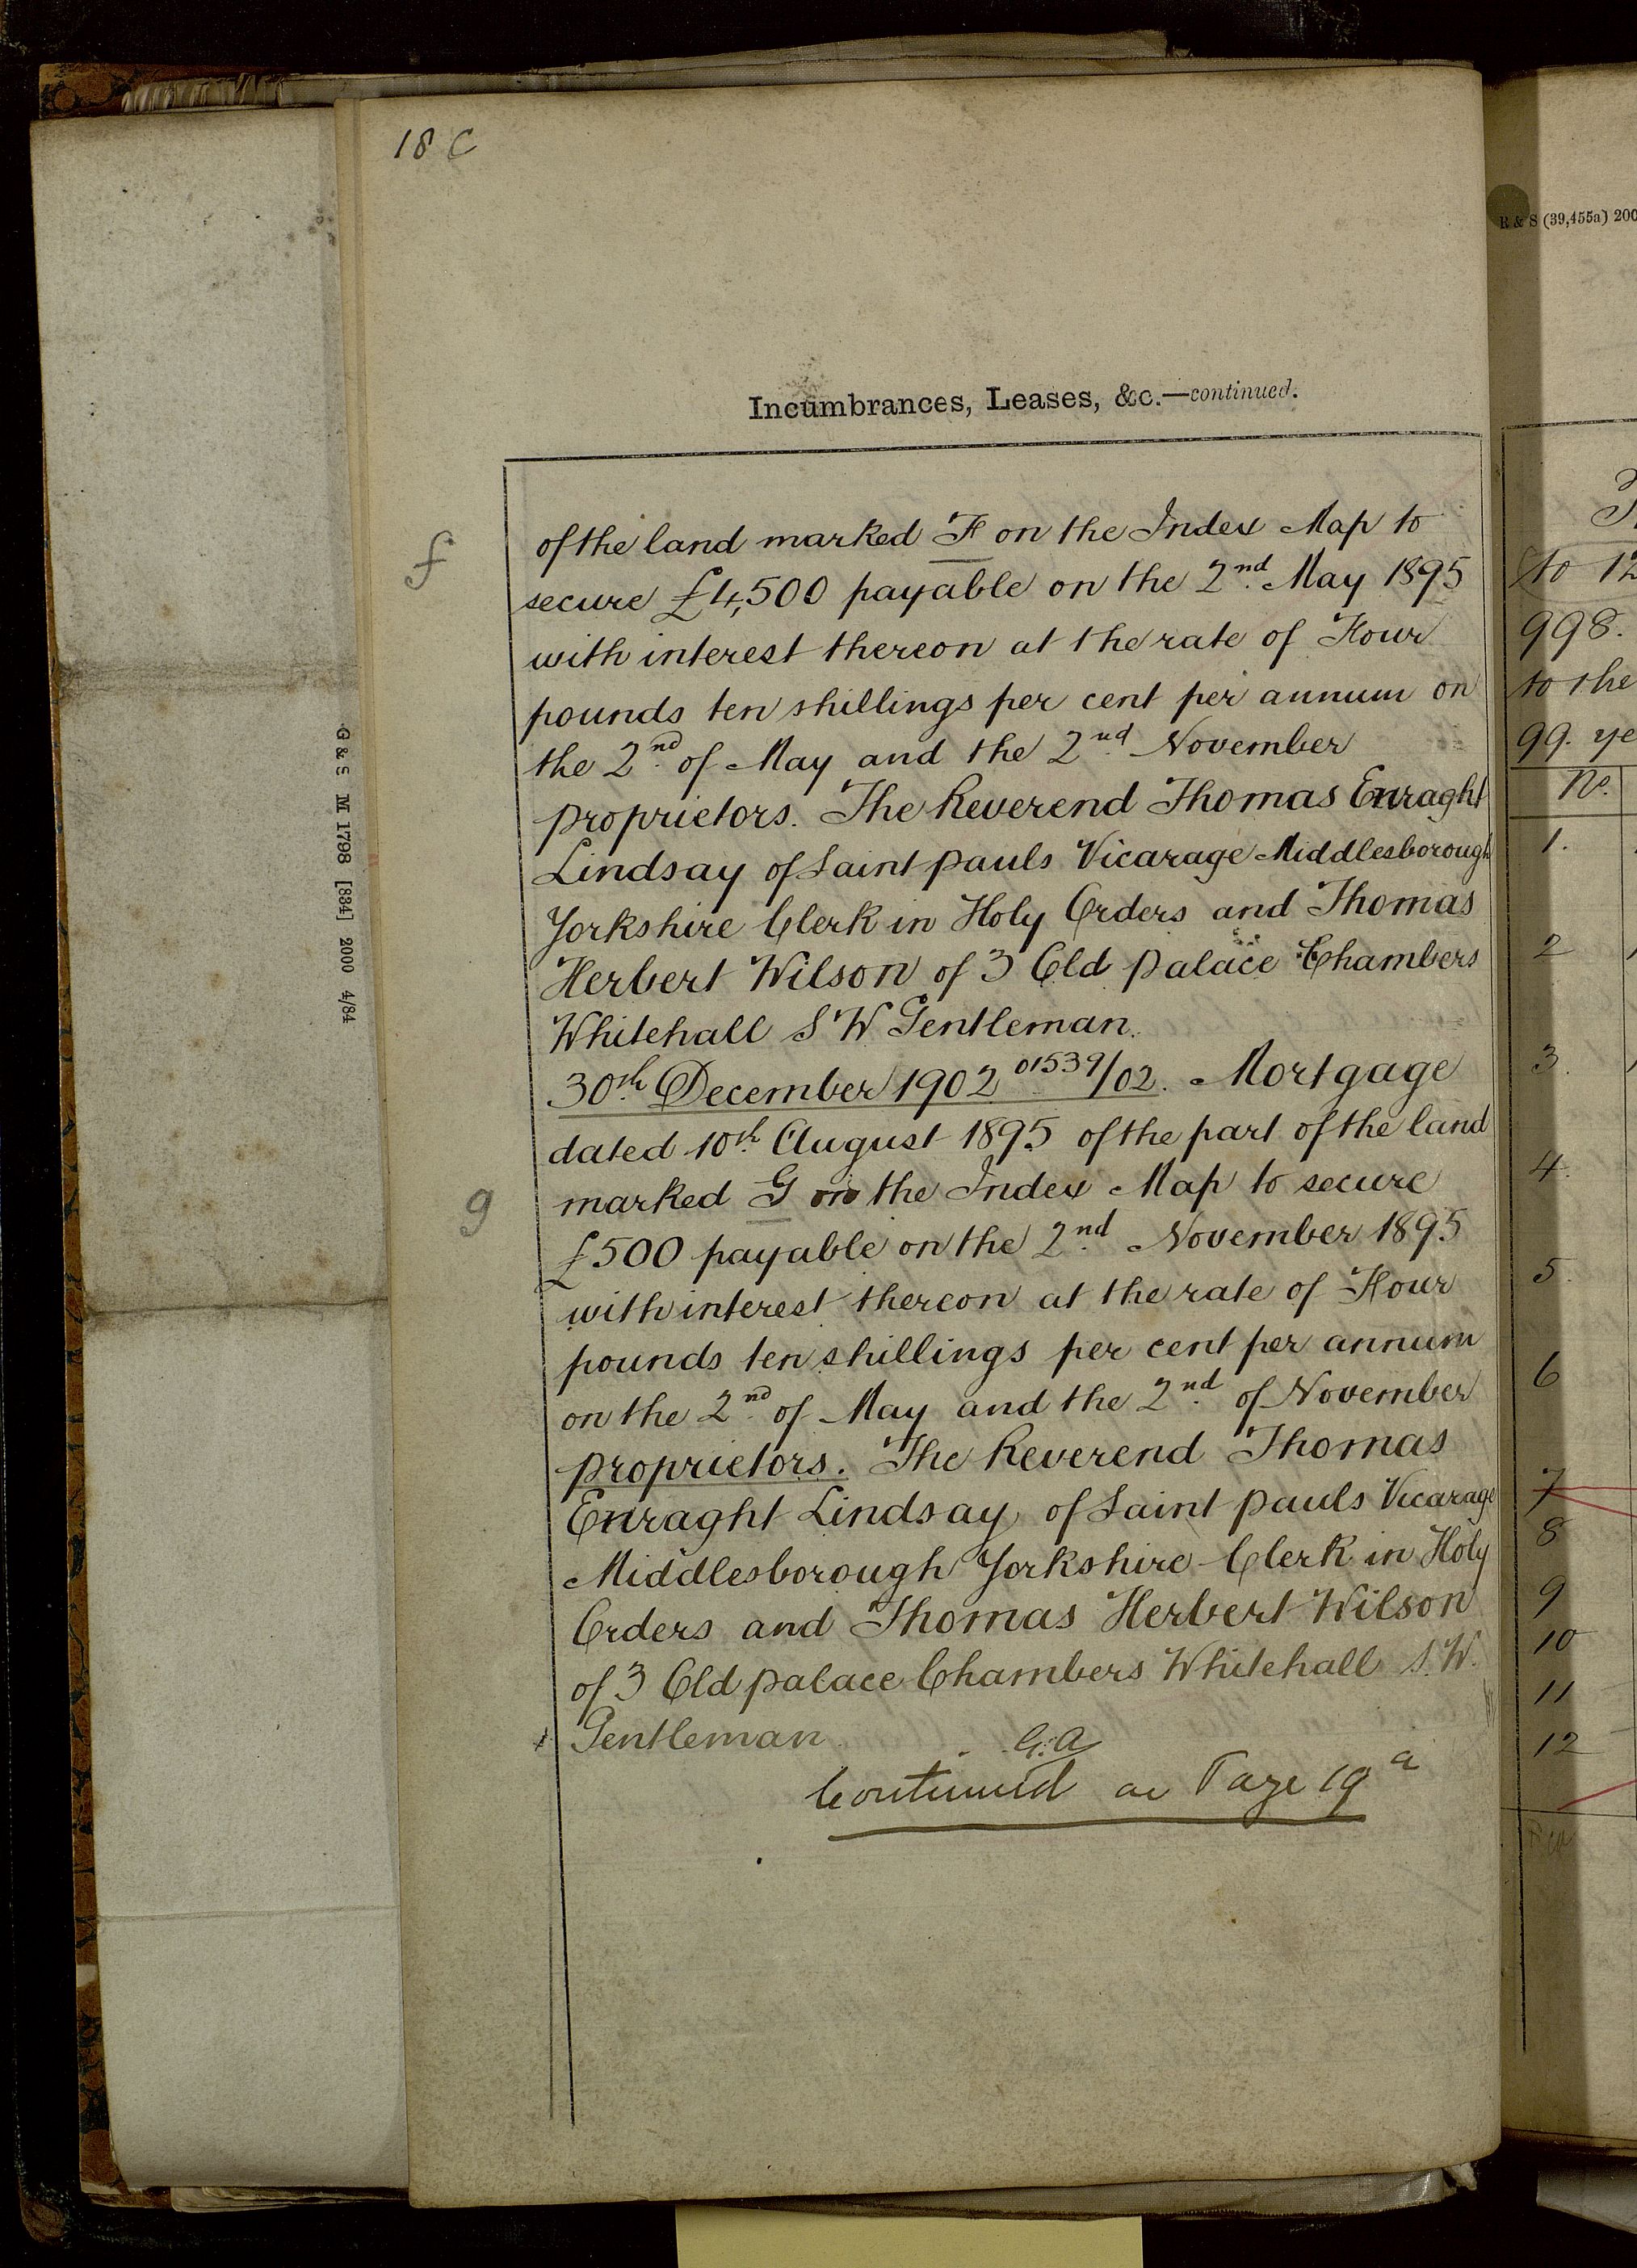 18 C
Incumbrances, Leases, &c.—continued.
f
of the land marked F on the Index Map to
secure £4,500 payable on the 2nd. May 1895
with interest thereon at the rate of Four
pounds ten shillings per cent per annum on
the 2nd. of May and the 2nd November
proprietors. The Reverend Thomas Enraght
Lindsay of Saint pauls Vicarage Middlesborough
Yorkshire Clerk in Holy Orders and Thomas
Herbert Wilson of 3 Old palace Chambers
Whitehall S W Gentleman.
30th. December 1902 01539/02. Mortgage
dated 10th. August 1895 of the part of the land
g
marked G on the Index Map to secure
£500 payable on the 2nd. November 1895
with interest thereon at the rate of Four
pounds ten shillings per cent per annum
on the 2nd. of May and the 2nd. of November
proprietors. The Reverend Thomas
Enraght Lindsay of Saint pauls Vicarage
Middlesborough Yorkshire Clerk in Holy
Orders and Thomas Herbert Wilson
of 3 Old palace Chambers Whitehall S.W.
Gentleman
G.A
Continued on Page 19a
G & S M 1798 [884] 2000 4/84
R & S (39,455a) 200
to 12
998.
to the
99. ye
No.
1.
2
3.
4.
5.
6
7
8
9
10
11
12